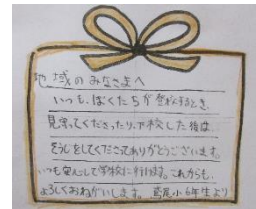 地域のみなさまへ
いつも、ぼくたちが登校するとき、
見守ってくださったり、下校した後は
そうじをしてくださってありがとうございます。
いつも安心して学校に行けます。これからも
よろしくおねがいします。 鳶尾小6年生より